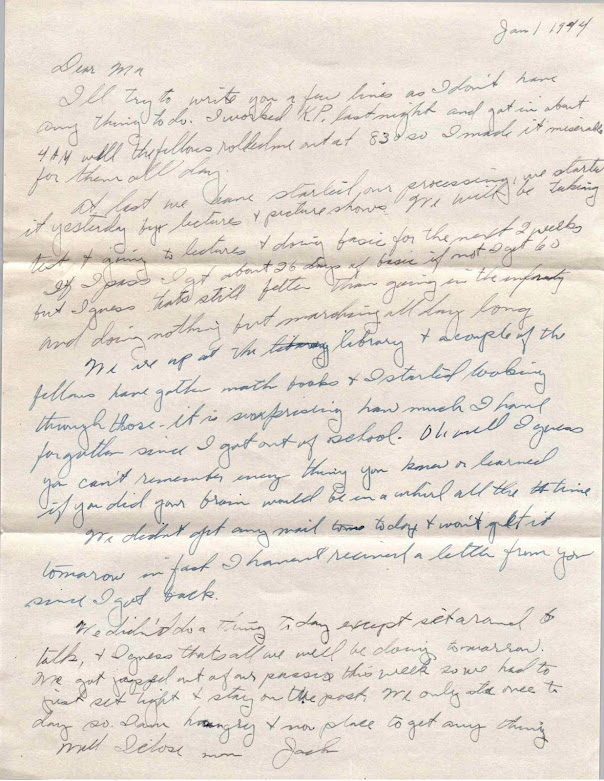 Jan 1 1944
Dear Ma
I'll try to write you a few lines as I don't have
any thing to do. I worked K.P. last night and got in about
4 AM well the fellows rolled me out at 830 so I made it miserable
for them all day.
At last we have started our processing, we started
it yesterday by lectures & picture shows. We will be taking
test & going to lectures & doing basic for the next 2 weeks
If I pass I get about 26 days of basic if not I get 60
but I guess thats still better than going in the infantry
and doing nothing but marching all day long
We are up at the library & a couple of the
fellows have gotten math books & I started looking
through those - it is surprising how much I have
forgotten since I got out of school. Oh well I guess
you can't remember every thing you knew or learned
if you did your brain would be in a whirl all the time
We didn't get any mail today & won't get it
tomarow in fact I havent recieved a letter from you
since I got back.
We didn't do a thing today except set around &
talk, & I guess thats all we will be doing tomarrow.
We got gypped out of our passes this week so we had to
just set tight & stay on the post. We only ate once to
day so I am hungry & now place to get any thing
Well I close now Jack